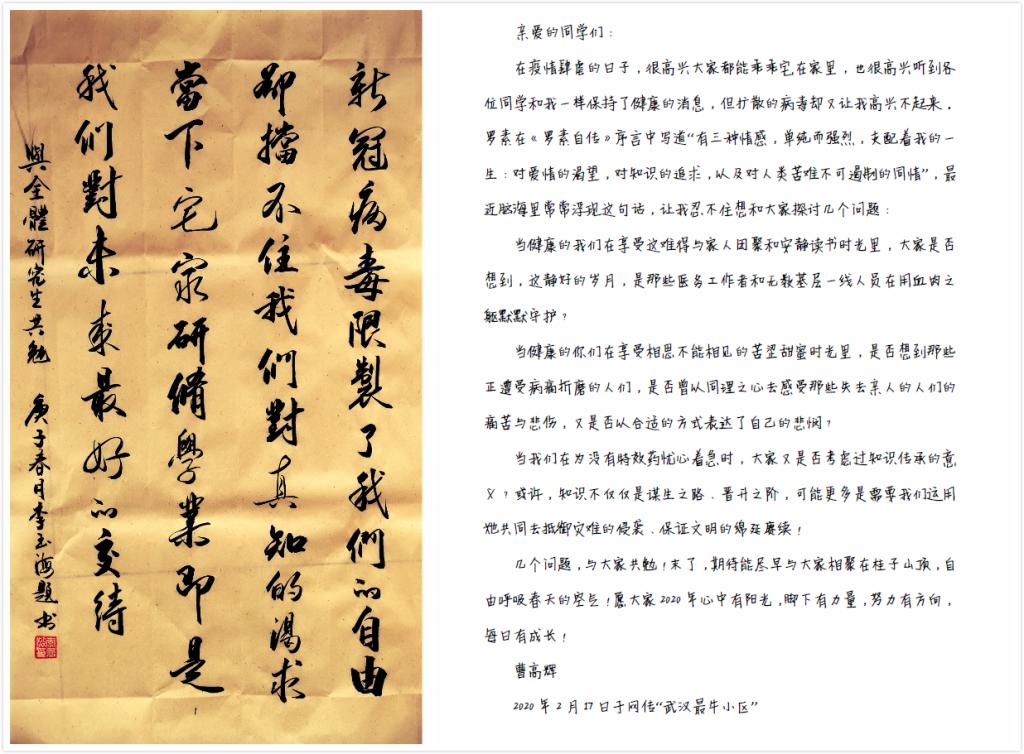 新冠病毒限製了我們的自由
卻擋不住我們對真知的渴求
當下宅家研脩學業即是
我们對未來最好的交待
與全體研究生共勉 庚子春月李玉海題书
亲爱的同学们：
在疫情肆虐的日子，很高兴大家都能乖乖宅在家里，也很高兴听到各
位同学和我一样保持了健康的消息，但扩散的病毒却又让我高兴不起来。
罗素在《罗素自传》序言中写道“有三种情感，单纯而强烈，支配着我的一
生：对爱情的渴望，对知识的追求，以及对人类苦难不可遏制的同情”，最
近脑海里常常浮现这句话，让我忍不住想和大家探讨几个问题：
当健康的我们在享受这难得与家人团聚和安静读书时光里，大家是否
想到，这静好的岁月，是那些医务工作者和无数基层一线人员在用血肉之
躯默默守护？
当健康的你们在享受相思不能相见的苦涩甜蜜时光里，是否想到那些
正遭受病痛折磨的人们，是否曾从同理之心去感受那些失去亲人的人们的
痛苦与悲伤，又是否以合适的方式表达了自己的悲悯？
当我们在为没有特效药忧心着急时，大家又是否考虑过知识传承的意
义？或许，知识不仅仅是谋生之路、晋升之阶，可能更多是需要我们运用
她共同去抵御灾难的侵袭、保证文明的绵延赓续！
几个问题，与大家共勉！末了，期待能尽早与大家相聚在桂子山顶，自
由呼吸春天的空气！愿大家2020年心中有阳光，脚下有力量，努力有方向，
每日有成长！
曹高辉
2020年2月17日于网传“武汉最牛小区”